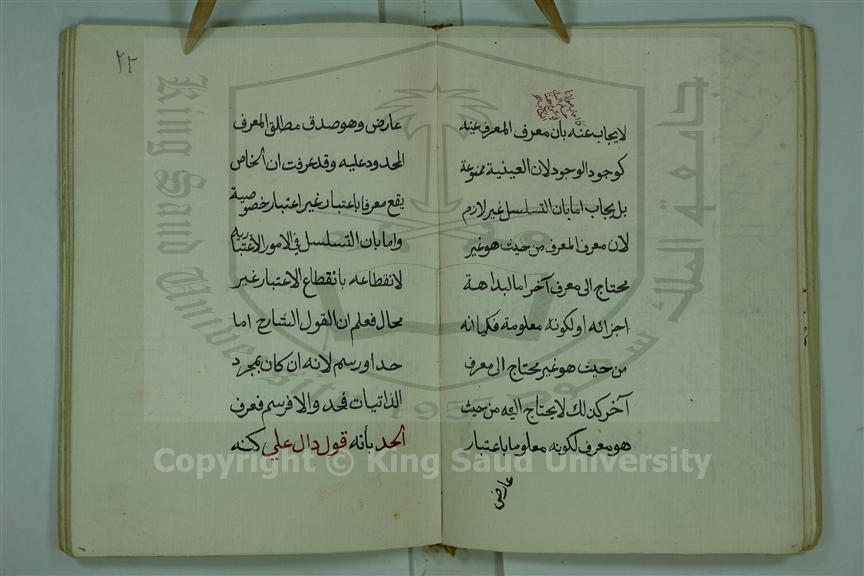 لا يجاب عنه بان معرف المعرف عينه
كوجود الوجود لان العينية ممنوعة
بل يجاب اما بان التسلسل غير لازم
لان معرف المعرف من حيث هو غير
محتاج الى معرف آخر اما لبداهة
اجزائه او لكونه معلومة فكما انه
من حيث هو غير محتاج الى معرف
آخر كذلك لا يحتاج اليه من حيث
هو معرف لكونه معلوما باعتبار
عارض
٢٢
عارض وهو صدق مطلق المعرف
المحدود عليه وقد عرفت ان الخاص
يقع معرفا باعتبار غير اعتبار خصوصية
واما بان التسلسل في الامور الاعتبارية
لانقطاعه بانقطاع الاعتبار غير
محال فعلم ان القول الشارح اما
حد او رسم لانه ان كان بمجرد
الذاتيات فحد والا فرسم فعرف
الحد بأنه قول دال علي كنه
جامعة الملك سعود
King Saud University
1957
Copyright © King Saud University